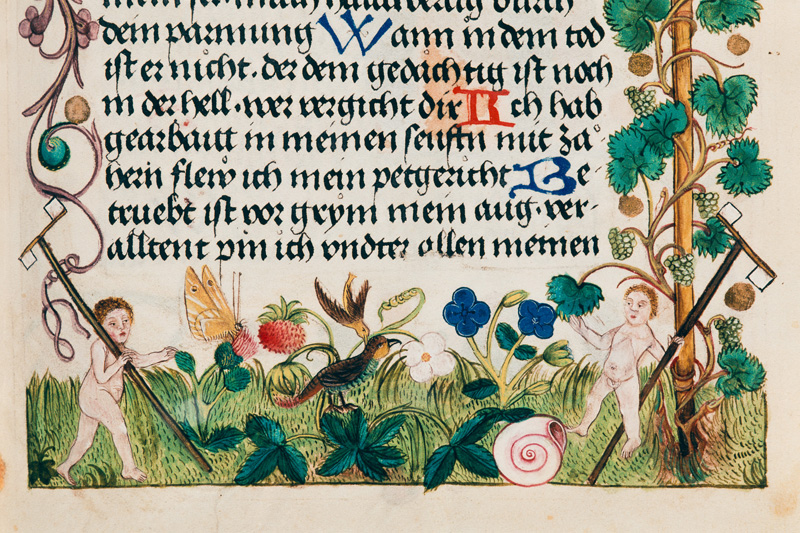 mein mach hailwertig durch
dein parmung Wann in dem tod
ist er nicht. der dem gedächtig ist noch
in der hell. wer vergicht dir Ich hab
gearbaitt in meinen seüftn mit zä
hern flew ich mein petgericht Be-
trüebt ist vor grym mein aug. ver-
alltent pin ich vndter allen meinen